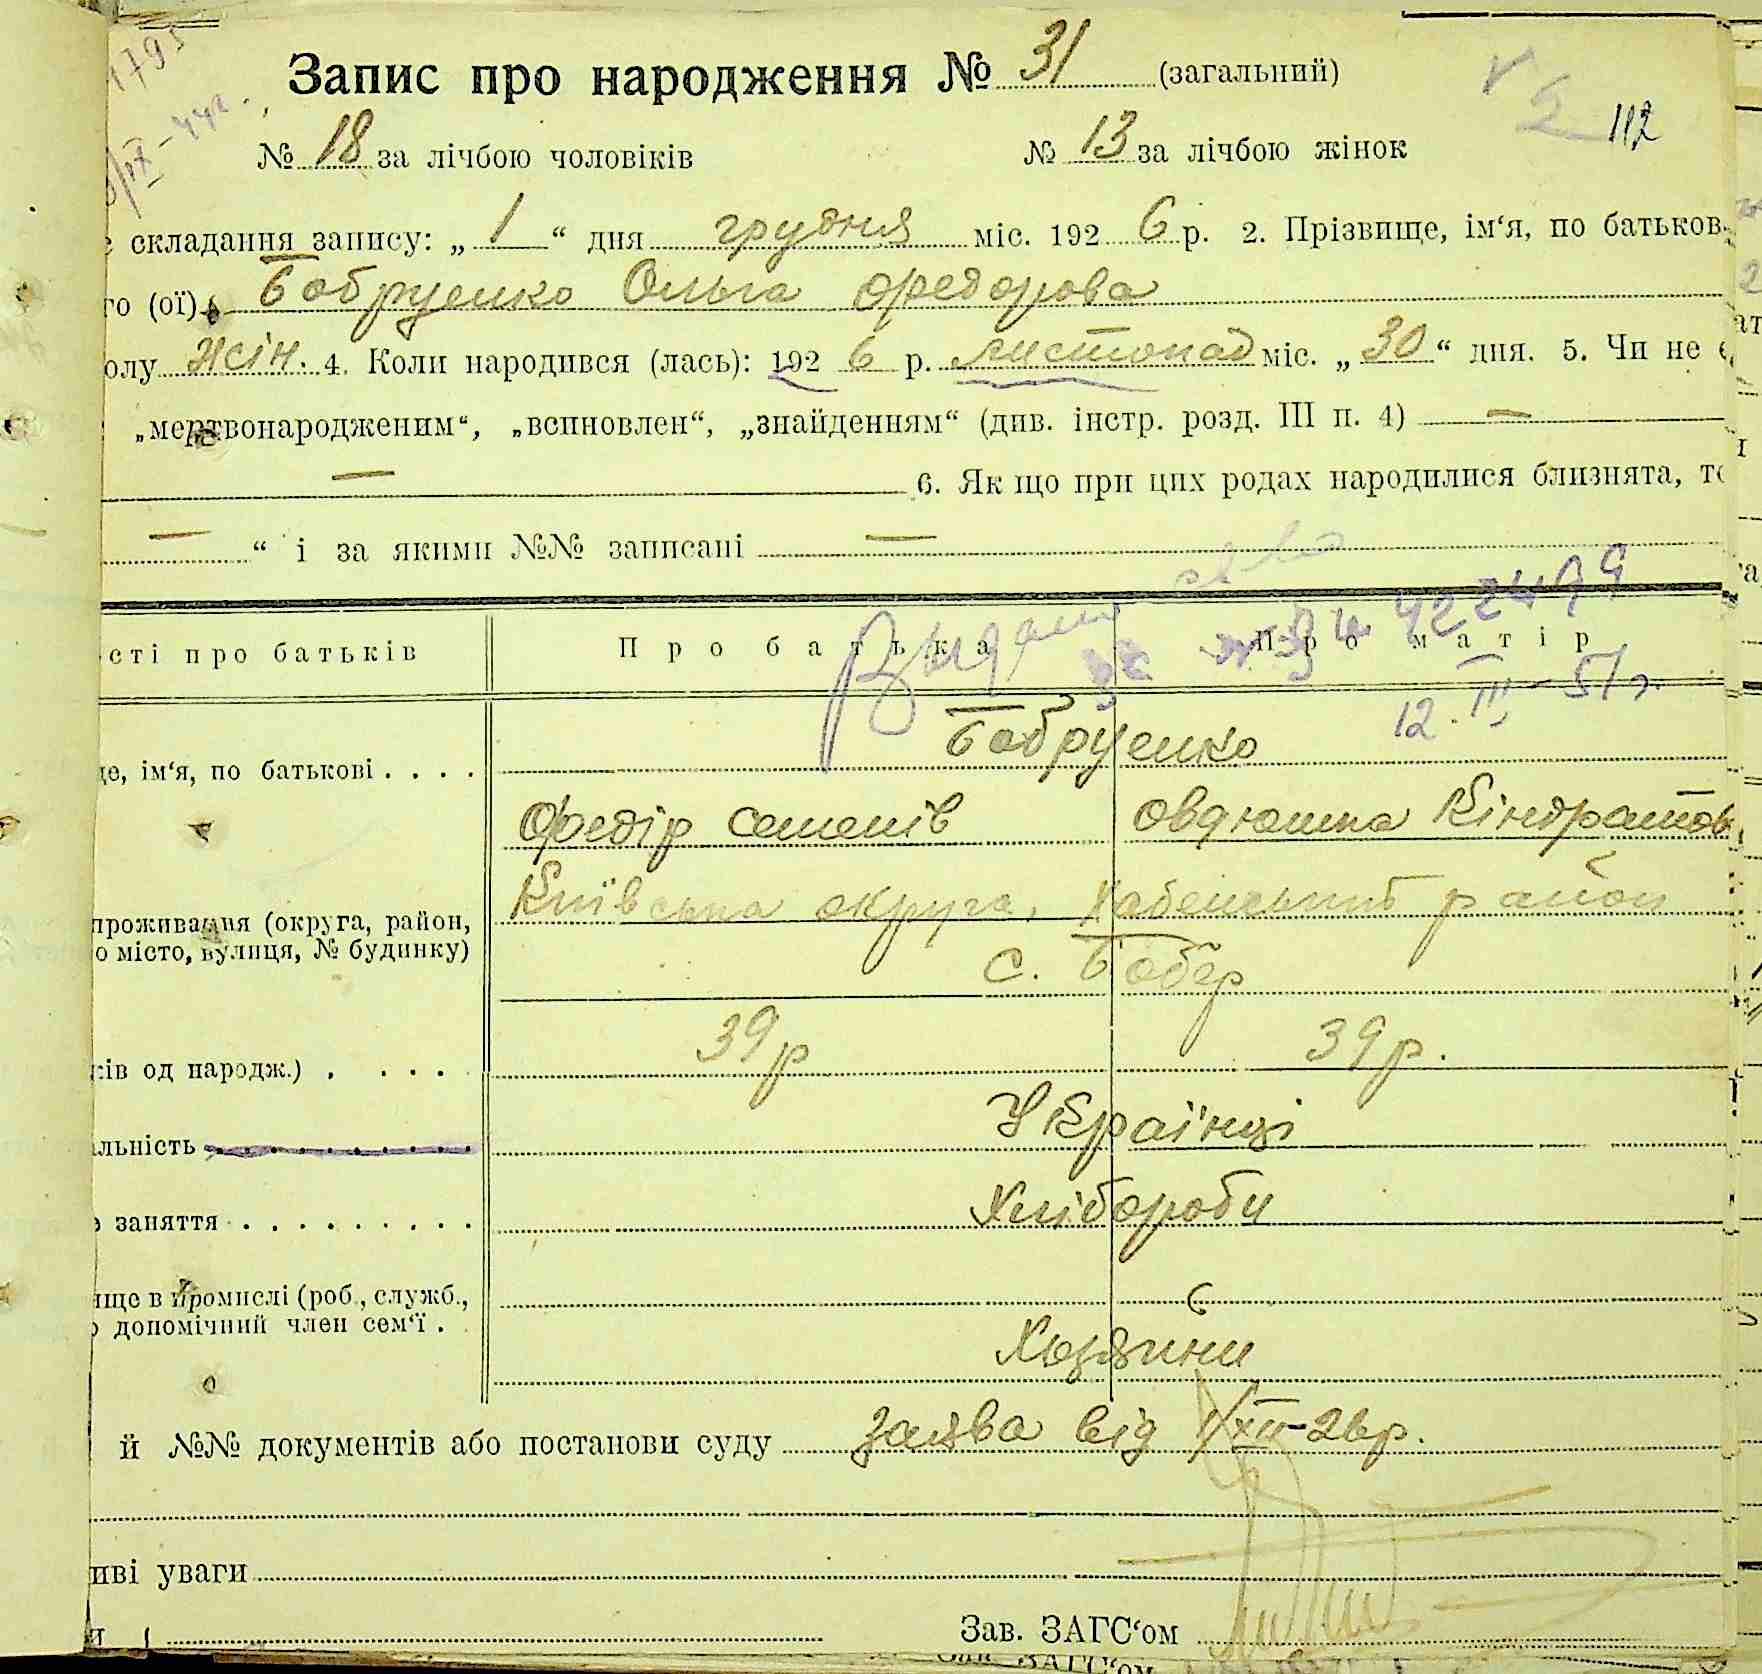 Запис про народження № 31 (загальний)
112
№ 18 за лічбою чоловіків № 13 за лічбою жінок
складання запису: „ 1 “ дня грудня міс. 192 6 р. 2. Прізвище, ім‘я, по батьков
го (ої) Бобруенко Ольга Федорова
олу жін. 4. Коли народився (лась): 192 6 р. листопад міс. „ 30 “ дня. 5. Чи не є
„мертвонародженим“, „всиновлен“, „знайденням“ (див. інстр. розд. III п. 4) —
— 6. Як що при цих родах народилися близнята, то
— “ і за якими №№ записані —
сті про батьків Про батька Про матір
Видано
12. III - 51 г.
Бобруенко
це, ім‘я, по батькові . . . .
Федір Семенів Овдюшка Кіндратов
Київська округа, Хабенський район
проживання (округа, район,
о місто, вулиця, № будинку)
с. Бобер
39 р 39 р.
ків од народж.) . . . . .
Українці
льність
Хлібороби
заняття . . . . . . . . .
ище в промислі (роб., служб.,
допомічний член сем‘ї .
Хозяини
й №№ документів або постанови суду заява від 1/XII-26р.
иві уваги
Зав. ЗАГС‘ом